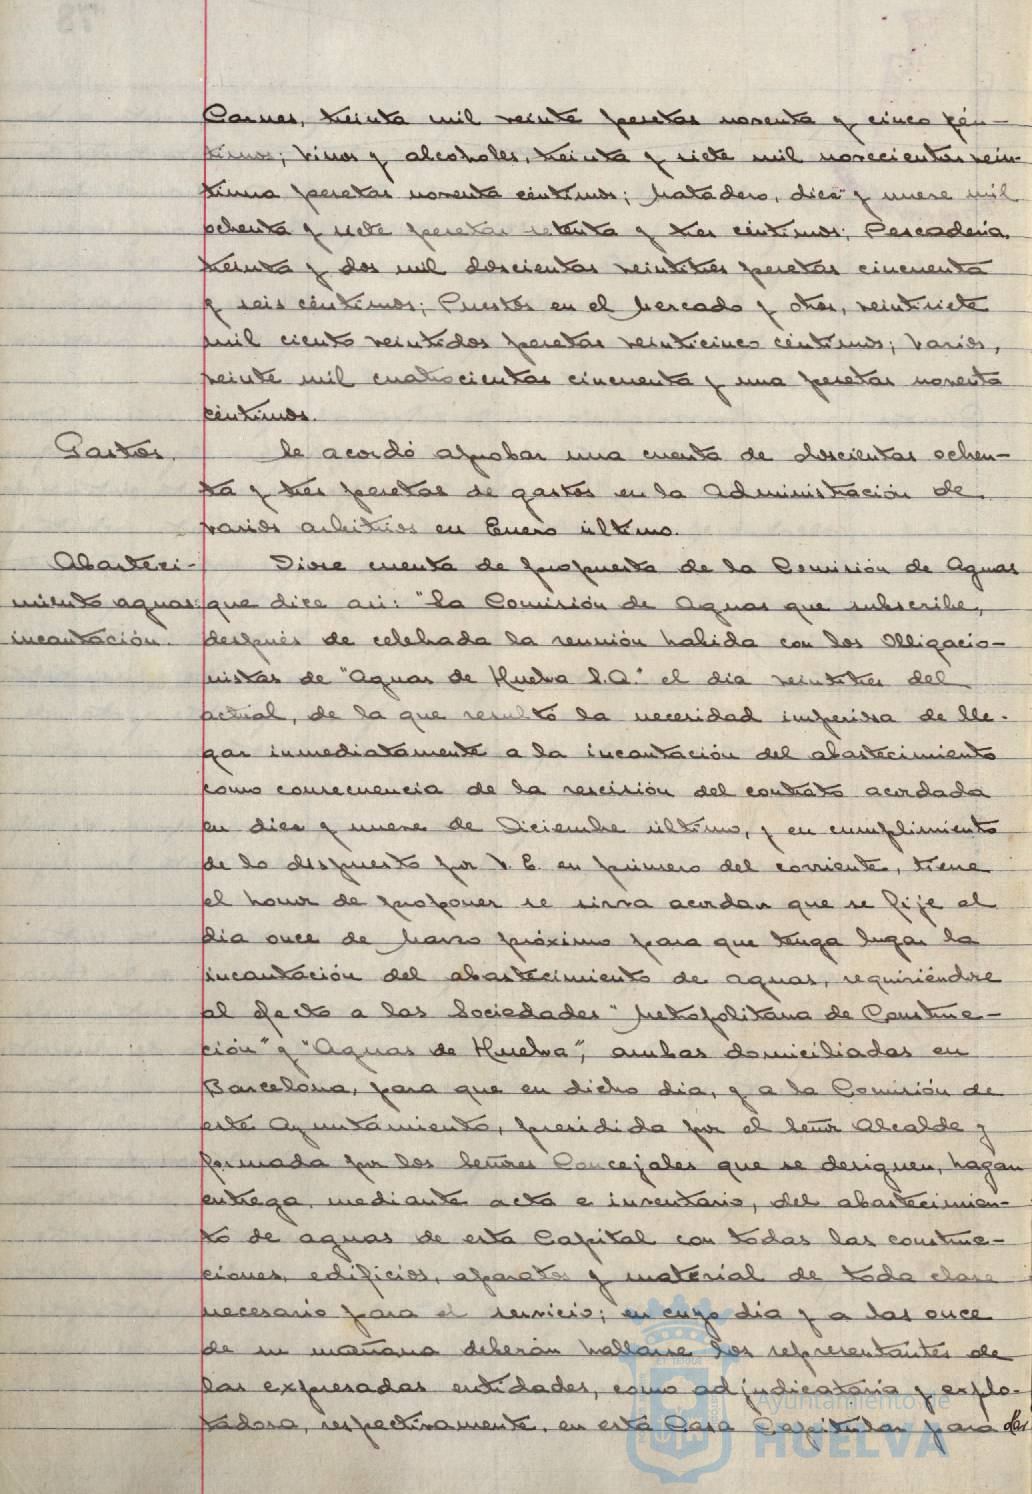 Carnes, treinta mil veinte pesetas noventa y cinco cén-
timos; Vinos y alcoholes, treinta y siete mil novecientas vein-
tiuna pesetas noventa céntimos; Matadero, diez y nueve mil
ochenta y siete pesetas setenta y tres céntimos; Pescadería,
treinta y dos mil doscientas veintitres pesetas cincuenta
y seis céntimos; Puestos en el Mercado y otros, veintisiete
mil ciento veintidos pesetas veinticinco céntimos; Varios,
veinte mil cuatrocientas cincuenta y una pesetas noventa
céntimos.
Gastos. Se acordó aprobar una cuenta de doscientas ochen-
ta y tres pesetas de gastos en la Administración de
varios arbitrios en Enero último.
Abasteci- Diose cuenta de propuesta de la Comisión de Aguas
miento aguas: que dice asi: "La Comisión de Aguas que subscribe,
incautación. después de celebrada la reunión habida con los Obligacio-
nistas de "Aguas de Huelva S.A." el día veintitres del
actual, de la que resultó la necesidad imperiosa de lle-
gar inmediatamente a la incautación del abastecimiento
como consecuencia de la rescisión del contrato acordada
en diez y nueve de Diciembre último, y en cumplimiento
de lo dispuesto por V. E. en primero del corriente, tiene
el honor de proponer se sirva acordar que se fije el
día once de Marzo próximo para que tenga lugar la
incautación del abastecimiento de aguas, requiriéndose
al efecto a las Sociedades "Metropolitana de Construc-
ción" y "Aguas de Huelva", ambas domiciliadas en
Barcelona, para que en dicho día, y a la Comisión de
este Ayuntamiento, presidida por el Señor Alcalde y
formada por los Señores Concejales que se designen, hagan
entrega, mediante acta e inventario, del abastecimien-
to de aguas de esta Capital con todas las construc-
ciones, edificios, aparatos y material de toda clase
necesario para el servicio; en cuyo día y a las once
de su mañana deberán hallarse los representantes de
las expresadas entidades, como adjudicataria y explo-
tadora, respectivamente, en esta Casa Capitular para
Ayuntamiento de
HUELVA